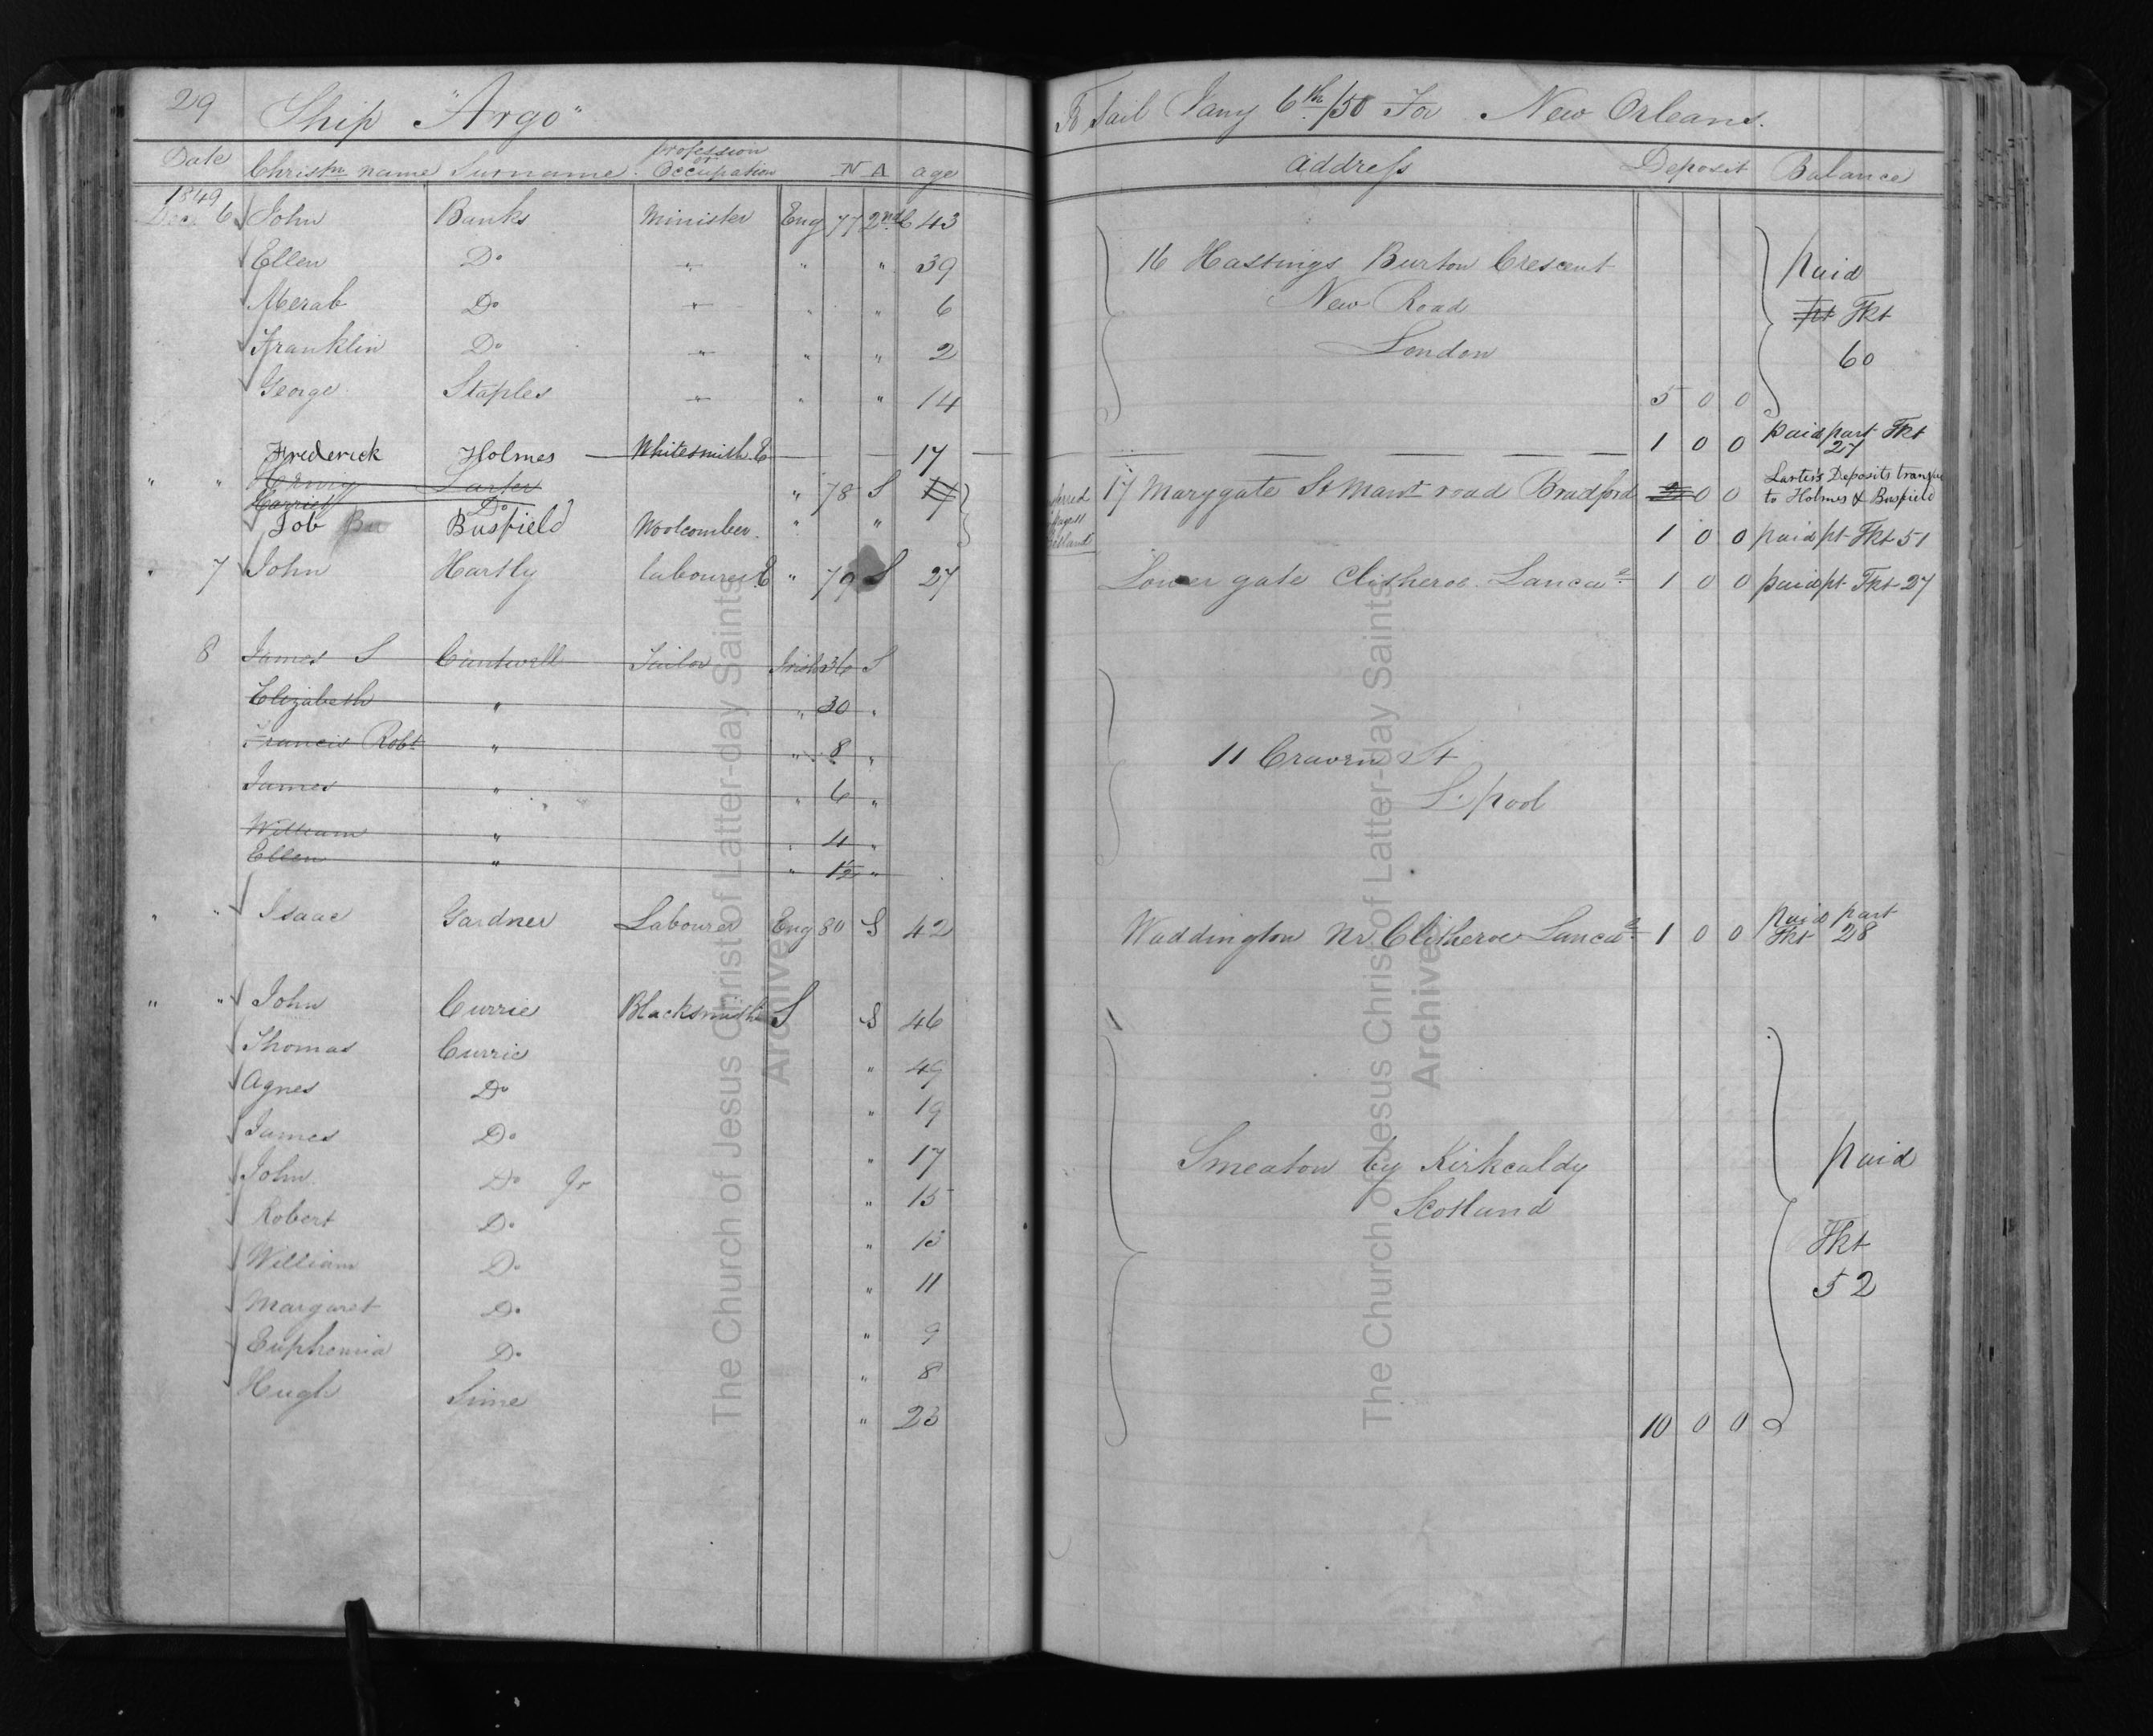 29 Ship "Argo" To Sail Jany 6th/50 For New Orleans.
Date Christn name Surname profession or Occupation N A age address Deposit Balance
1849
Decr 6 John Banks Minister Eng 77 2nd C 43
Ellen Do " " " 39 16 Hastings Burton Crescent paid
Merab Do " " " 6 New Road pt Tkt
Franklin Do " " " 2 London 60
George Staples " " " 14 5 0 0
Frederick Holmes Whitesmith E 17 1 0 0 paid part Tkt 27
" " Henry Larter " 78 S 17 Marygate St road Bradford 0 0 Larter's Deposits transfe
Harriet Do to Holmes & Busfield
Job Bu Busfield Woolcomber " " 1 0 0 paid pt Tkt 51
" 7 John Hartly labourer E " 79 S 27 Lower gate Clitheroe Lancae 1 0 0 paid pt Tkt 27
8 James S Cantwell Tailor Irish 36 S
Elizabeth " " 30 "
Francis Robt " " 8 " 11 Craven St
James " " 6 " L.pool
William " " 4 "
Ellen " " 1½ "
" " Isaac Gardner Labourer Eng 80 S 42 Waddington Nr Clitheroe Lancae 1 0 0 paid part Tkt 28
" " John Currie Blacksmith S S 46
Thomas Currie " 49
Agnes Do " 19
James Do " 17 Smeaton by Kirkcaldy paid
John Do Jr " 15 Scotland
Robert Do " 13 Tkt
William Do " 11 52
Margaret Do " 9
Euphemia Do " 8
Hugh Sime " 23 10 0 0
The Church of Jesus Christ of Latter-day Saints
Archives
The Church of Jesus Christ of Latter-day Saints
Archives